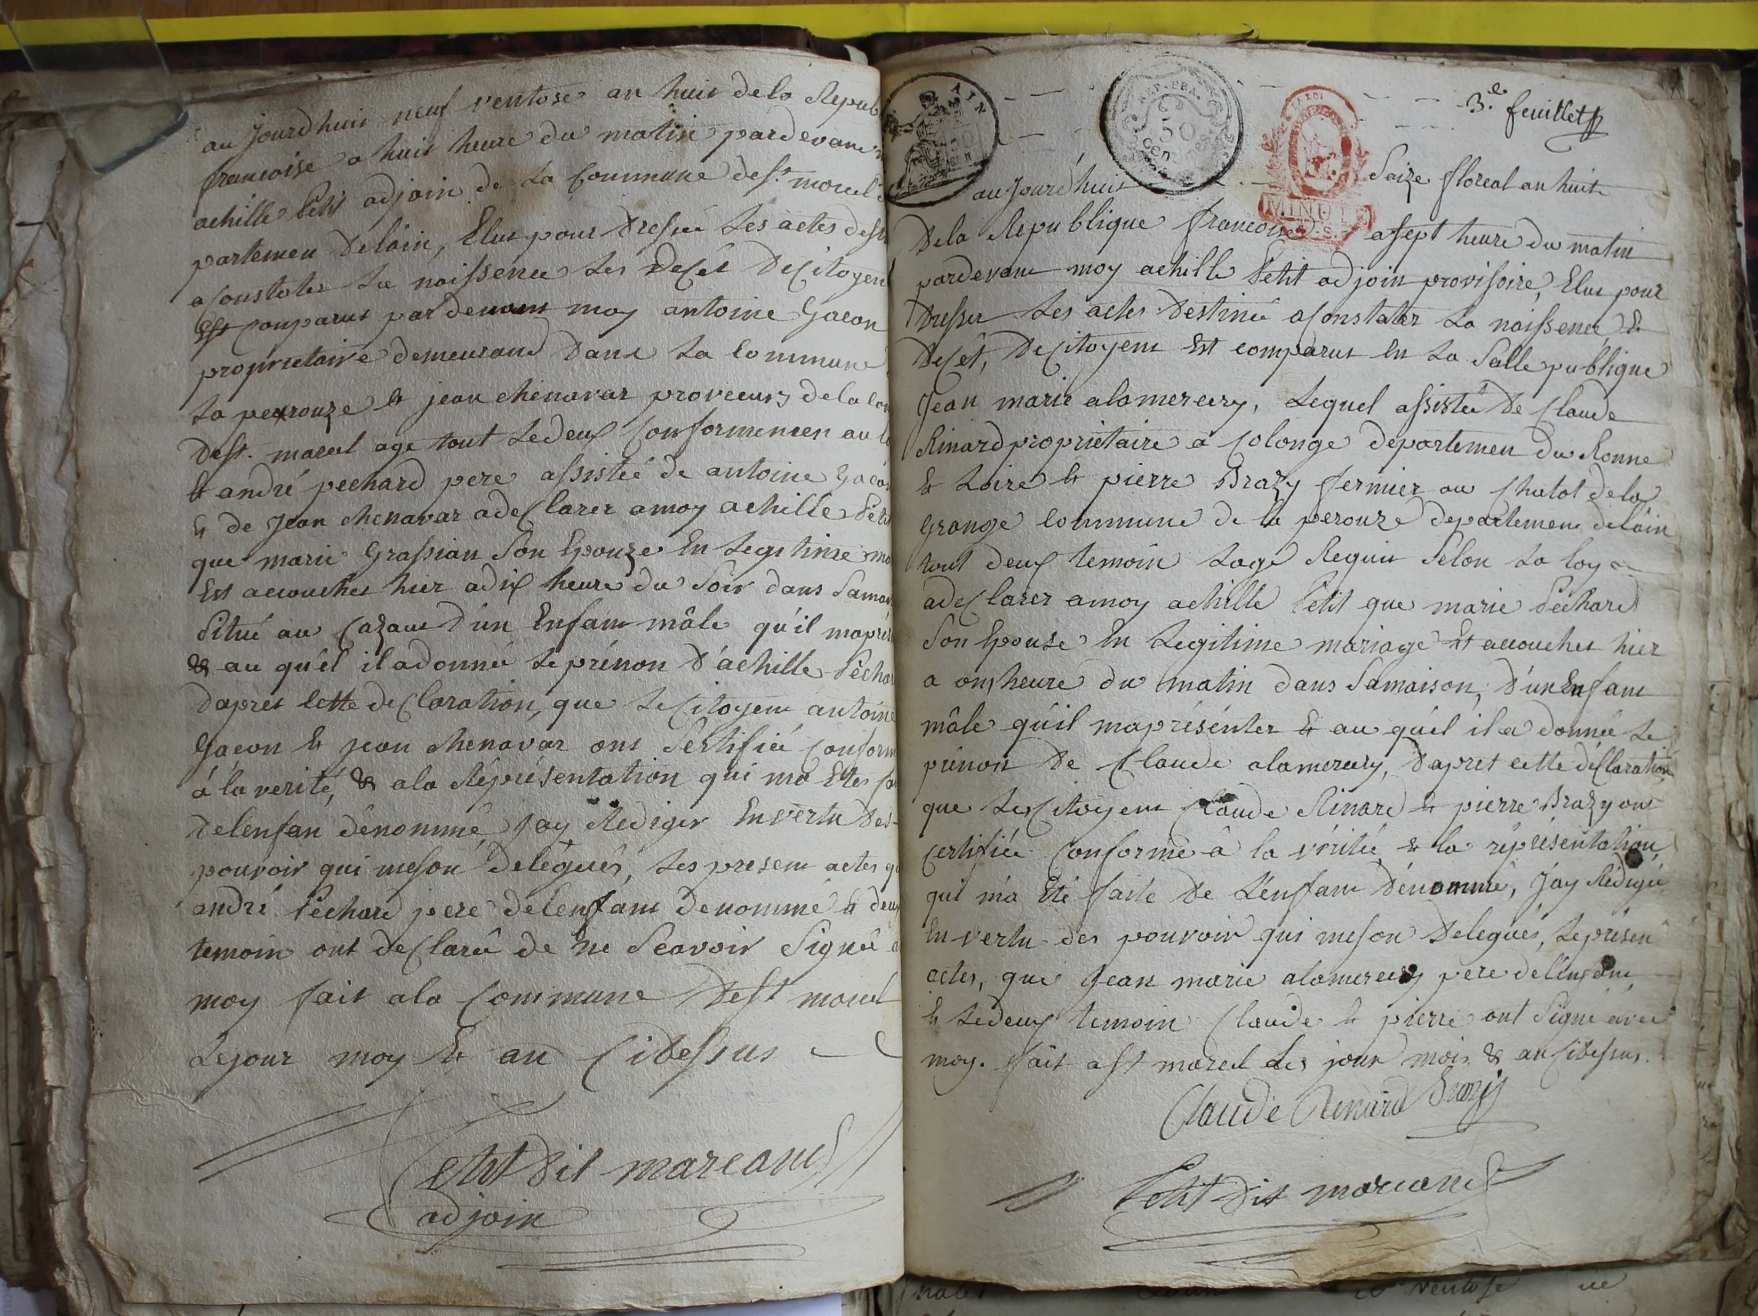 au Jourdhuit neuf ventose an huit dela Repub
francoise a huit heure du matin pardevant
achille Petit adjoin de La Commune de St. marcel
partemen Delain, Elut pour Dressée Les actes dest
a Constater La naissence Les Decet De Citoyen
Est comparut pardevant moy antoine Gacon
proprietaire demeurand Dans La Commune
La peyrouze & jean chenavar proveeurs de la com
de St. marcel age tout Ledeux Conformemen au
& andré pechard pere assistée de antoine Gacon
& de Jean chenavar a deClarer a moy achille Petit
que marie Grassian Son Epouze En Legitime ma
Est accouchée hier a dix heure du Soir dans Samai
Situé au Cazau D'un Enfam mâle qu'il maprés
& au qu'el il a donnée Le prénon D'achille Péchar
daprés Cette deClaration, que Le Citoyem antoine
Gacon & jean chenavar ont Sértifié Conform
á la verité, & a la Réprésentation qui ma Etée fa
Delenfan dénommé Jay Rediger En vertu Des
pouvoir qui meson Delégués, Les presem actes qu
andré Péchard pere delenfant Denommé & deux
temoin ont deClarée de ne Scavoir Signée
moy fait ala Commune De St marcel
Le jour moy & an Cidessus
Petit Dit marcand
adjoin
3.e feuillet
AIN
REP. FRA.
50
CEN
LA LOI
MINUTE
au Jourd'huit Saize floreal an huit
Dela Republique francoise a sept heure du matin
pardevant moy achille Petit adjoin provisoire, Elut pour
Dresser Les actes Destinée a Constater La naissence &
Decét, De Citoyem Est comparut En La Salle publique
Jean marie alamercery, Lequel assistée De Claude
Rinard proprietaire a Colonge departemen du Ronne
& Loire & pierre Brazy fermier au Chatot dela
Grange Commune de la perouze departemem delain
tout deux temoin Lage Requit Selon La loy
a deClarer a moy achille Petit que marie Péchard
Son Epouse En Legitime mariage Est accouchée hier
a onz heure du matin dans Samaison, d'un Enfant
mâle qu'il maprésénter & au qu'el il a donnée Le
prénon De Claude alamercery, D'aprét cette déClaration
que Les Citoyem Claude Rinard & pierre Brazy ont
certifiée Conforme à la véritée & la réprésentation
qui m'a Eté faite De L'énfant Dénommé, J'ay Rédigée
En vertu des pouvoir qui meson Delegués, Le présen
actes, que Jean marie alamercery pere de l'enfant
& Ledeux temoin Claude & pierre ont Signé avec
moy. fait a St marcel Les jour mois & an Cidessus.
Claude Renard Brazy
Petit Dit marcand